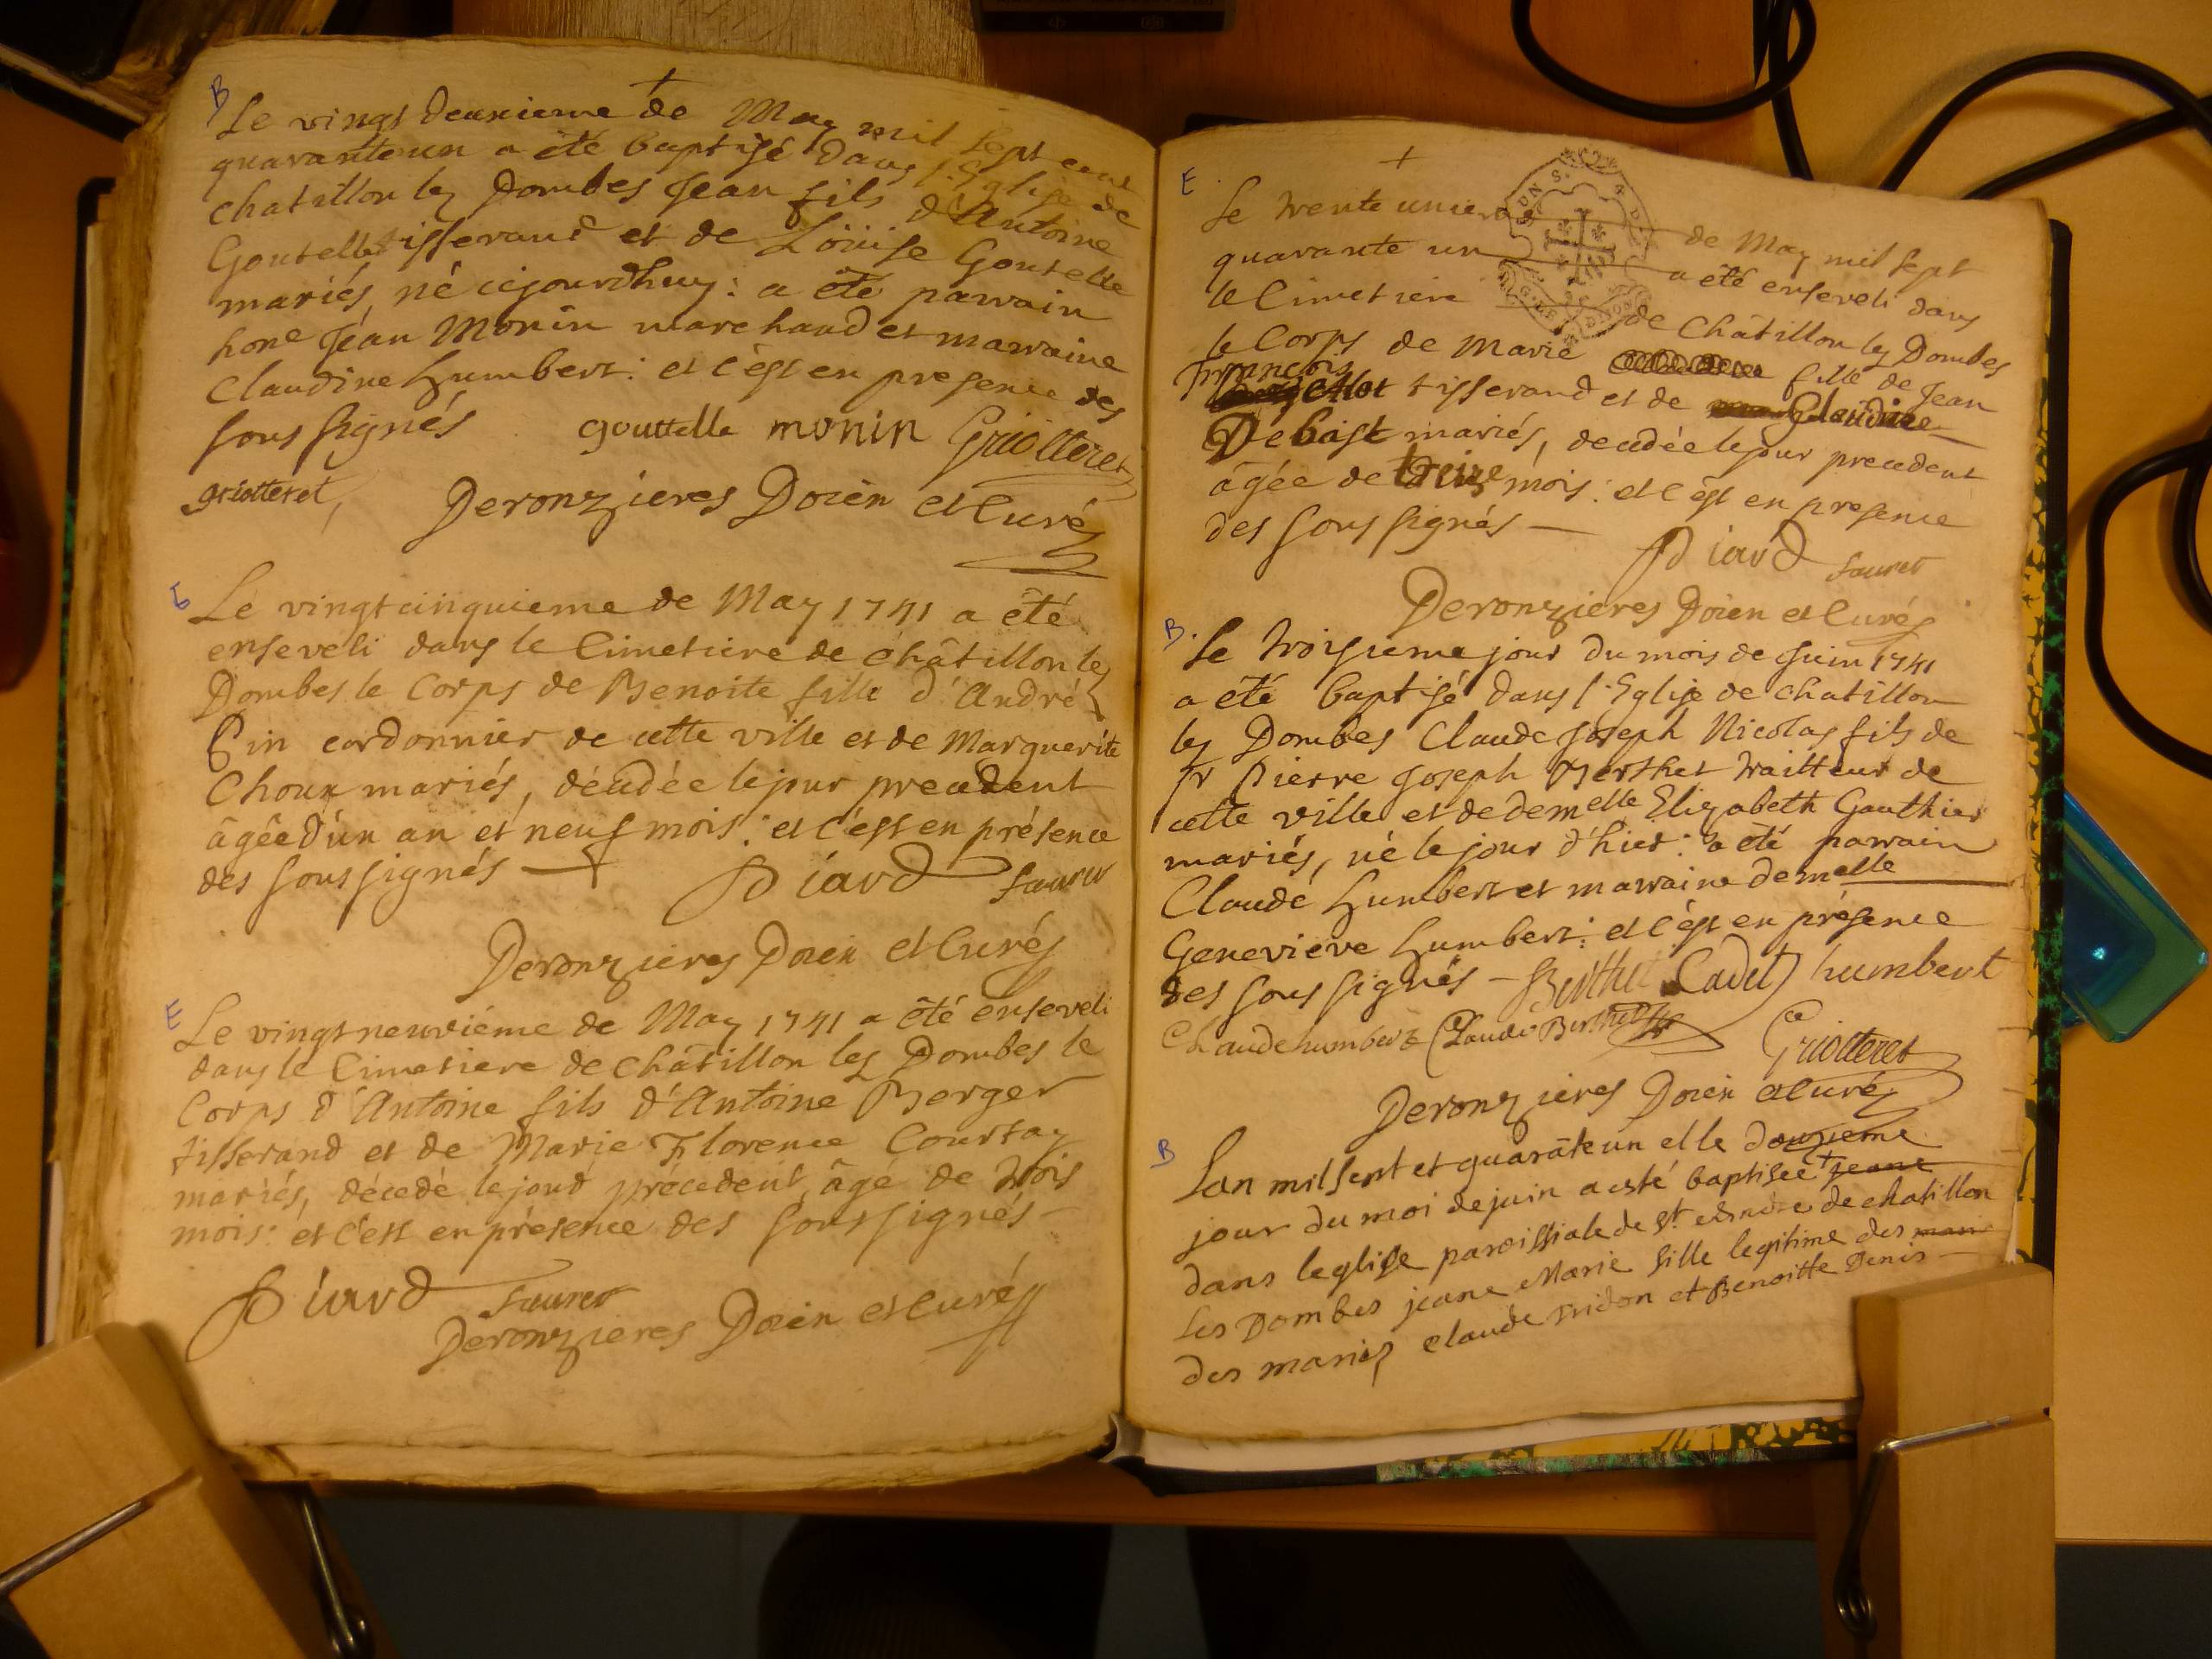 B
Le vingt deuxieme de May mil sept cent
quarante un a été baptisé dans l'Eglise de
chatillon les Dombes Jean fils d'Antoine
Goutelle tisserand et de Loüise Goutelle
mariés, né cejourdhuy: a été parrain
hone Jean Monin marchand et marraine
Claudine humbert: et c'est en presence des
sous signés gouttelle monin Griotteret
griotteret, Deronzieres Doien et Curé
E
Le vingtcinquieme de May 1741 a été
enseveli dans le Cimetiere de Châtillon les
Dombes le Corps de Benoite fille d'André
Pin cordonnier de cette ville et de Marguerite
Choux mariés, décédée le jour precedent
âgée d'ûn an et neuf mois: et c'est en présence
des sous signés Piard sauret
Deronzieres Doien et Curé
E
Le vingt neuviéme de May 1741 a êté enseveli
dans le Cimetiere de Châtillon les Dombes le
Corps d'Antoine fils d'Antoine Berger
tisserand et de Marie Florence Courtay
mariés, décedé le jour précedent, âgé de trois
mois: et c'est en présence des sous signés
Piard sauret
Deronzieres Doien et Curé
E
Le trente unieme de May mil sept
quarante un a été enseveli dans
le Cimetiere de Châtillon les Dombes
le Corps de Marie fille de Jean
François
tisserand et de Claudine
Debost mariés, decedée le jour precedent
âgée de treize mois: et c'est en presence
des sous signés Piard sauret
Deronzieres Doien et Curé
B.
Le troisieme jour du mois de Juin 1741
a été baptisé dans l'Eglise de chatillon
les Dombes Claude Joseph Nicolas fils de
Sr Pierre Joseph Berthet traitteur de
cette ville et de demelle Elizabeth Gauthier
mariés, né le jour d'hier: a été parrain
Claude humbert et marraine demelle
Geneviéve humbert: et c'est en présence
des sous signés Berthet Cadet humbert
Claude humbert Claude Berthet Griotteret
Deronzieres Doien et Curé
B
Lan mil sept et quarâte un et le douzieme
jour du moi de juin a esté baptisée jeane
dans leglise paroissiale de st andre de chatillon
les Dombes jeane Marie fille legitime des mari
des mariés claude Pridon et Benoitte Denis